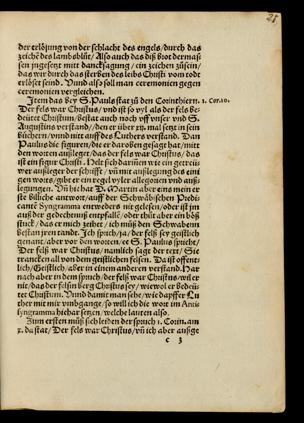 der erlösung von der schlacht des engels/durch das
zeichẽ des lambs blůt/Also auch das diß brot der mas-
sen zůgesetzt mitt dancksagung/ein zeichen zůsein/
das wir durch das sterben des leibs Christi vom todt
erlößet seind. Vund also soll man ceremonien gegen
ceremonien vergleichen.
Item das bey S. Pauls stat zů den Corinthiern. 1. Cor. 10.
Der fels war Christus/vnd ist so vyl als der fels be-
deütet Christum/bestat auch noch vff vnser vnd S.
Augustins verstand/den er über xij. mal setzt in sein
büchern/vnd nitt auff des Luthers verstand. Dan
Paulus die figuren/die er daroben gesagt hat/mitt
den worten außleget/das der fels war Christus/das
ist ein figur Christi. Helt sich darmẽ wie ein getreü
wer außleger der schrifft/vñ mit außlegung des eint
gen worts/gibt er ein regel vyler allegorien vnd auß
legungen. Vñ hie hat D. Martin aber eins mein er
ste billiche antwort/auff der Schwäbischen Predi
cantẽ Syngramma entweders nit gelesen/oder ist jm
auß der gedechtnuß entpfallẽ/oder thůt aber ein böß
stuck/das er mich schilt/ich müß den Schwaben
bestan yren tandt. Ich sprich/ja/der felß sey geistlich
genant/aber vor den worten/ee S. Paulus spricht/
Der felß war Christus/namlich sage der rett/Sie
trancken all von dem geistlichen felsen. Da ist offent
lich/Geistlich/aber in einem anderen verstand. Har
nach aber in dem spruch/der felß war Christus/wil er
nie/das der felsin berg Christus sey/wiewol er bedeü
tet Christum. Vund damit man sehe/wie dapffer Lu
ther mit mir vmbgange/so will ich die wort im Antis
syngramma hiehar setzen/welche lauten also.
Zum ersten můß sich leiden der spruch 1. Corin. am
x. da stat/Der fels war Christus/vñ ich aber außge
c 3